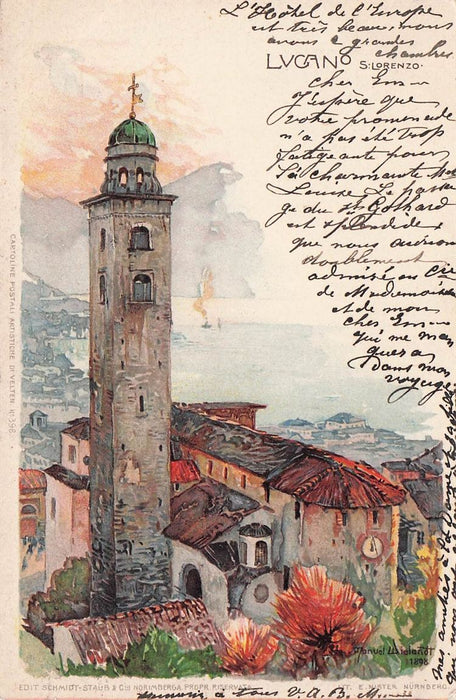 L'Hôtel de l'Europe
est très beau, nous
avons 2 grandes
chambres.
LUGANO
S. LORENZO.
cher Em—
J'espère que
votre promenade
n'a pas été trop
fatigante pour
la charmante Mad
Louise Le passa
ge du St Gothard
est splendide,
que nous aurions
doublement
admiré en Cie
de Mademoise
et de mon
cher Em—
qui me man
quera
dans mon
voyage.
CARTOLINE POSTALI ARTISTICHE DI VELTEN No 398.
Manuel Wielandt
1898
EDIT. SCHMIDT-STAUB & Cie NORIMBERGA PROPR. RISERVATA
LIT. E. NISTER NÜRNBERG.
à vous